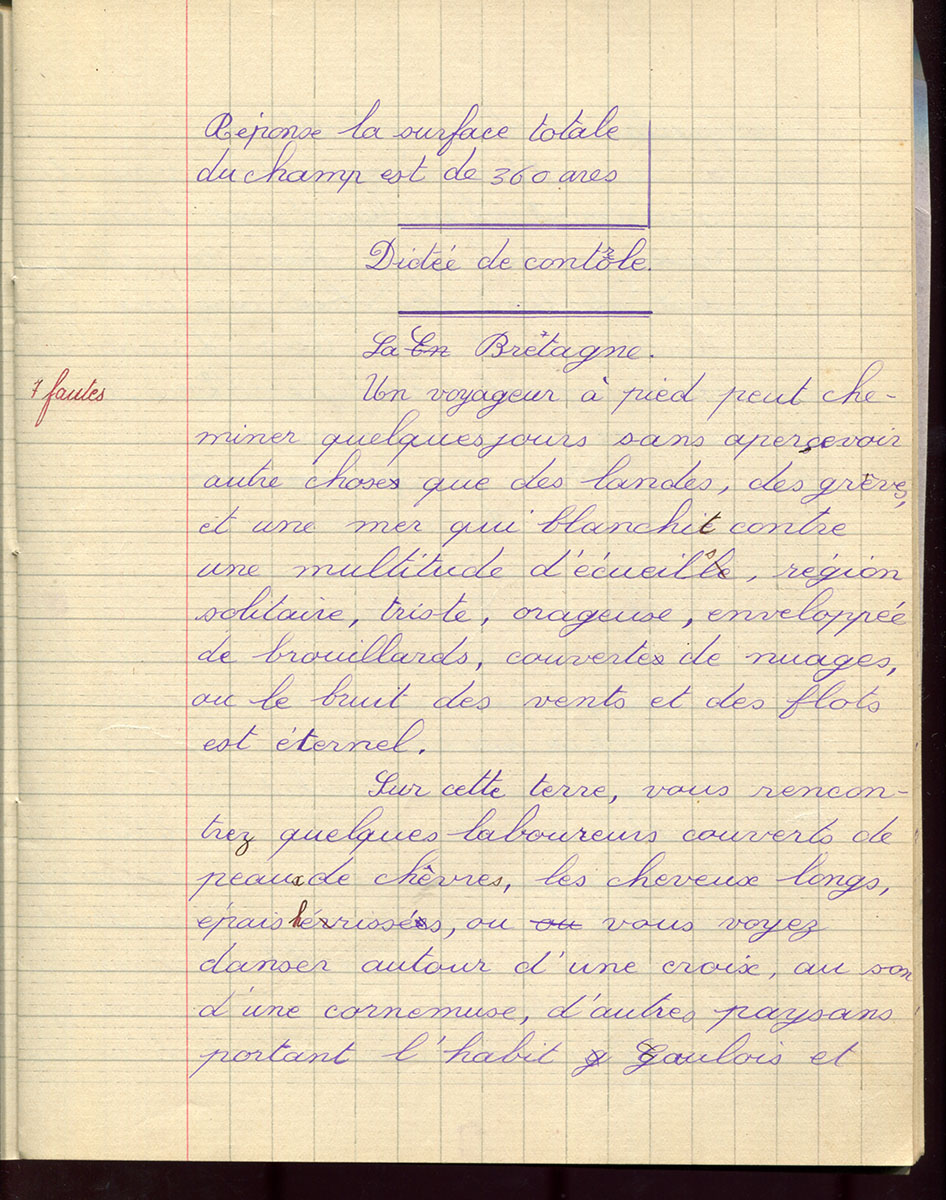 Réponse la surface totale
du champ est de 360 ares
Dictée de contrôle.
La En Bretagne.
7 fautes
Un voyageur à pied peut che-
miner quelques jours sans apercevoir
autre choses que des landes, des grèves,
et une mer qui blanchit contre
une multitude d'écueils, région
solitaire, triste, orageuse, enveloppée
de brouillards, couvertes de nuages,
ou le bruit des vents et des flots
est éternel.
Sur cette terre, vous rencon-
trez quelques laboureurs couverts de
peaux de chèvres, les cheveux longs,
épais hérissés, ou ou vous voyez
danser autour d'une croix, au son
d'une cornemuse, d'autres paysans
portant l'habit g Gaulois et